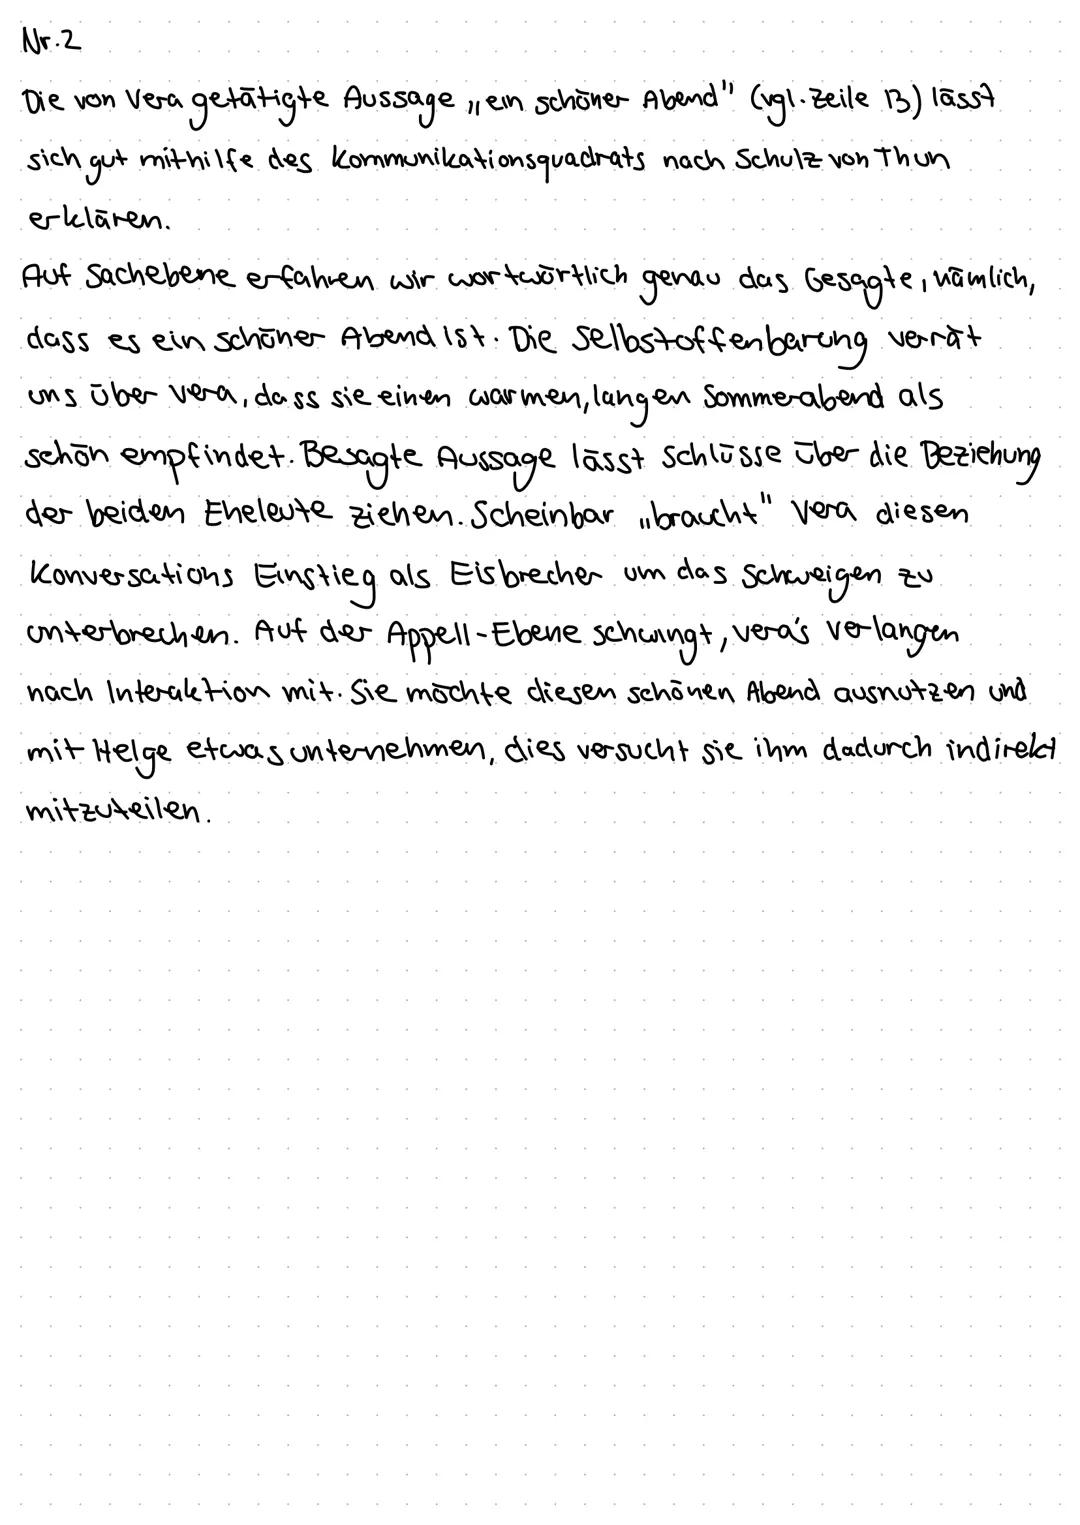 Nr.2
Die von Vera getätigte Aussage „ein schöner Abend" (vgl. Zeile 13) lässt
sich gut mithilfe des Kommunikationsquadrats nach Schulz von Thun
erklären.
Auf Sachebene erfahren wir wortwörtlich genau das Gesagte, nämlich,
dass es ein schöner Abend ist. Die Selbstoffenbarung verrät
uns über Vera, dass sie einen warmen, langen Sommerabend als
schön empfindet. Besagte Aussage lässt Schlüsse über die Beziehung
der beiden Eheleute ziehen. Scheinbar „braucht" Vera diesen
Konversations Einstieg als Eisbrecher um das Schweigen zu
unterbrechen. Auf der Appell-Ebene schwingt, Vera's Verlangen
nach Interaktion mit. Sie möchte diesen schönen Abend ausnutzen und
mit Helge etwas unternehmen, dies versucht sie ihm dadurch indirekt
mitzuteilen.